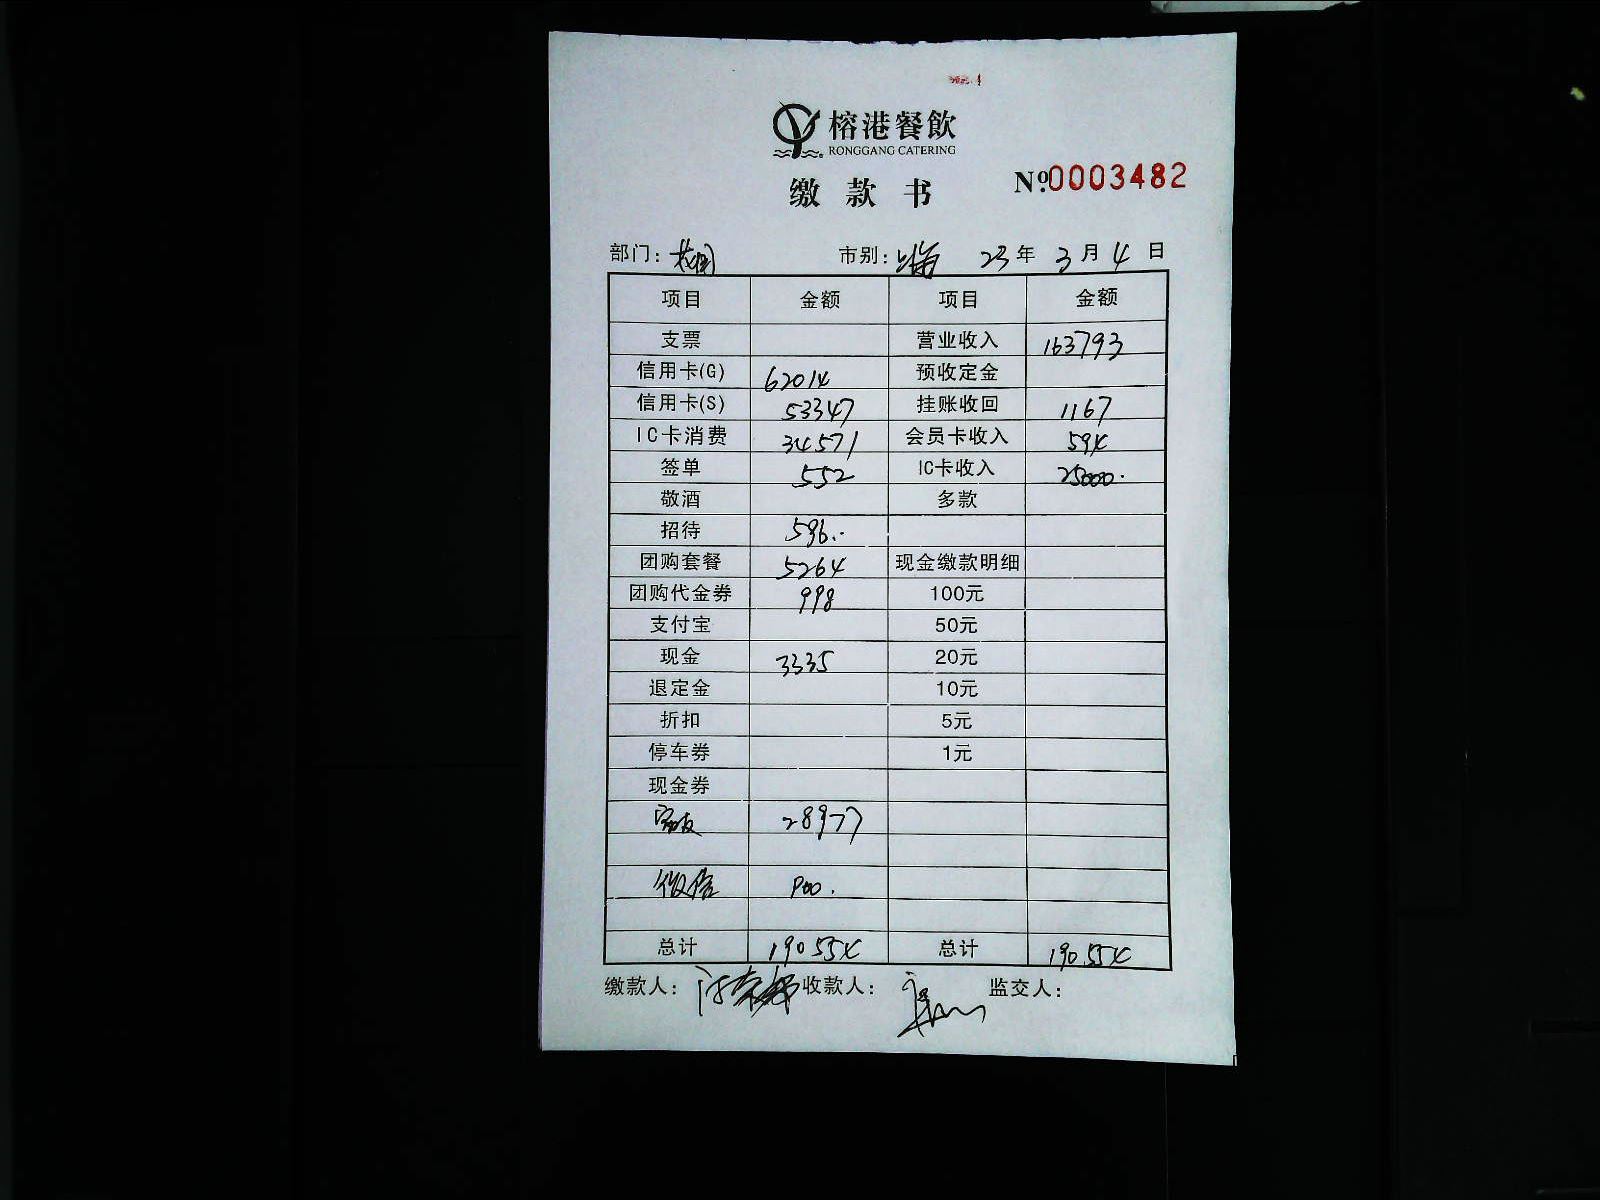 榕港餐飲
RONGGANG CATERING
缴款书 №0003482
部门: 市别: 上海 23年 3月 4日
项目 金额 项目 金额
支票 营业收入 163793
信用卡(G) 62014 预收定金
信用卡(S) 53347 挂账收回 1167
IC卡消费 34571 会员卡收入 594
签单 552 IC卡收入 25000.
敬酒 多款
招待 596..
团购套餐 5264 现金缴款明细
团购代金券 998 100元
支付宝 50元
现金 3335 20元
退定金 10元
折扣 5元
停车券 1元
现金券
28977
微信 900.
总计 190554 总计 190554
缴款人: 收款人: 监交人: